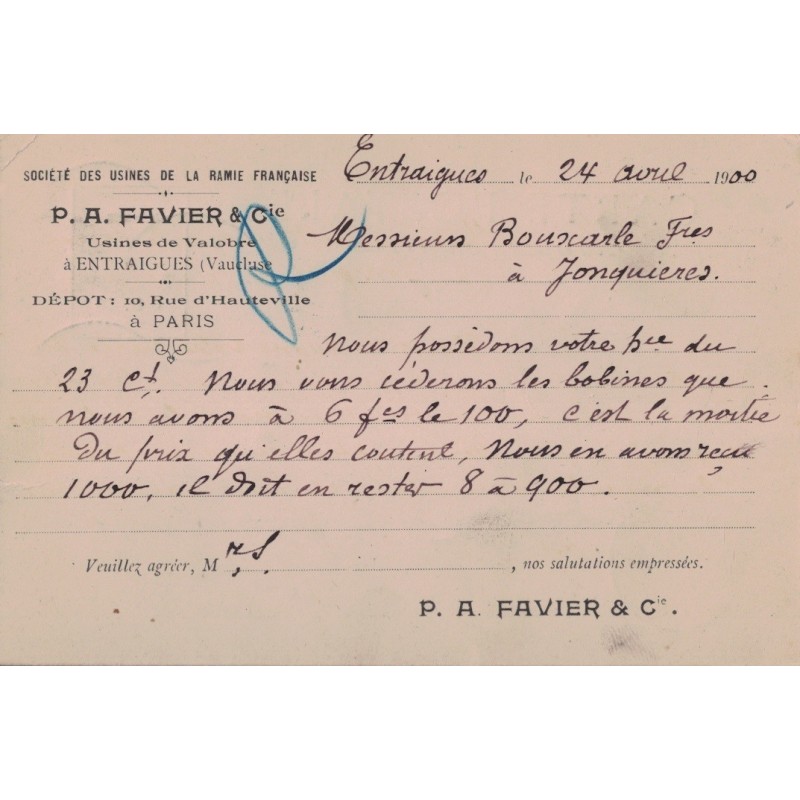 SOCIÉTÉ DES USINES DE LA RAMIE FRANÇAISE
P. A. FAVIER & Cie
Usines de Valobre
à ENTRAIGUES (Vaucluse
DÉPOT : 10, Rue d'Hauteville
à PARIS
Entraigues le 24 avril 1900
Messieurs Bouscarle Fres
à Jonquieres.
Nous possédons votre hre du
23 ct. Nous vous céderons les bobines que
nous avons à 6 fcs le 100, c'est la moitie
du prix qu'elles coutent, Nous en avons reçu
1000, il doit en rester 8 à 900.
Veuillez agréer, M rs. , nos salutations empressées.
P. A. FAVIER & Cie.